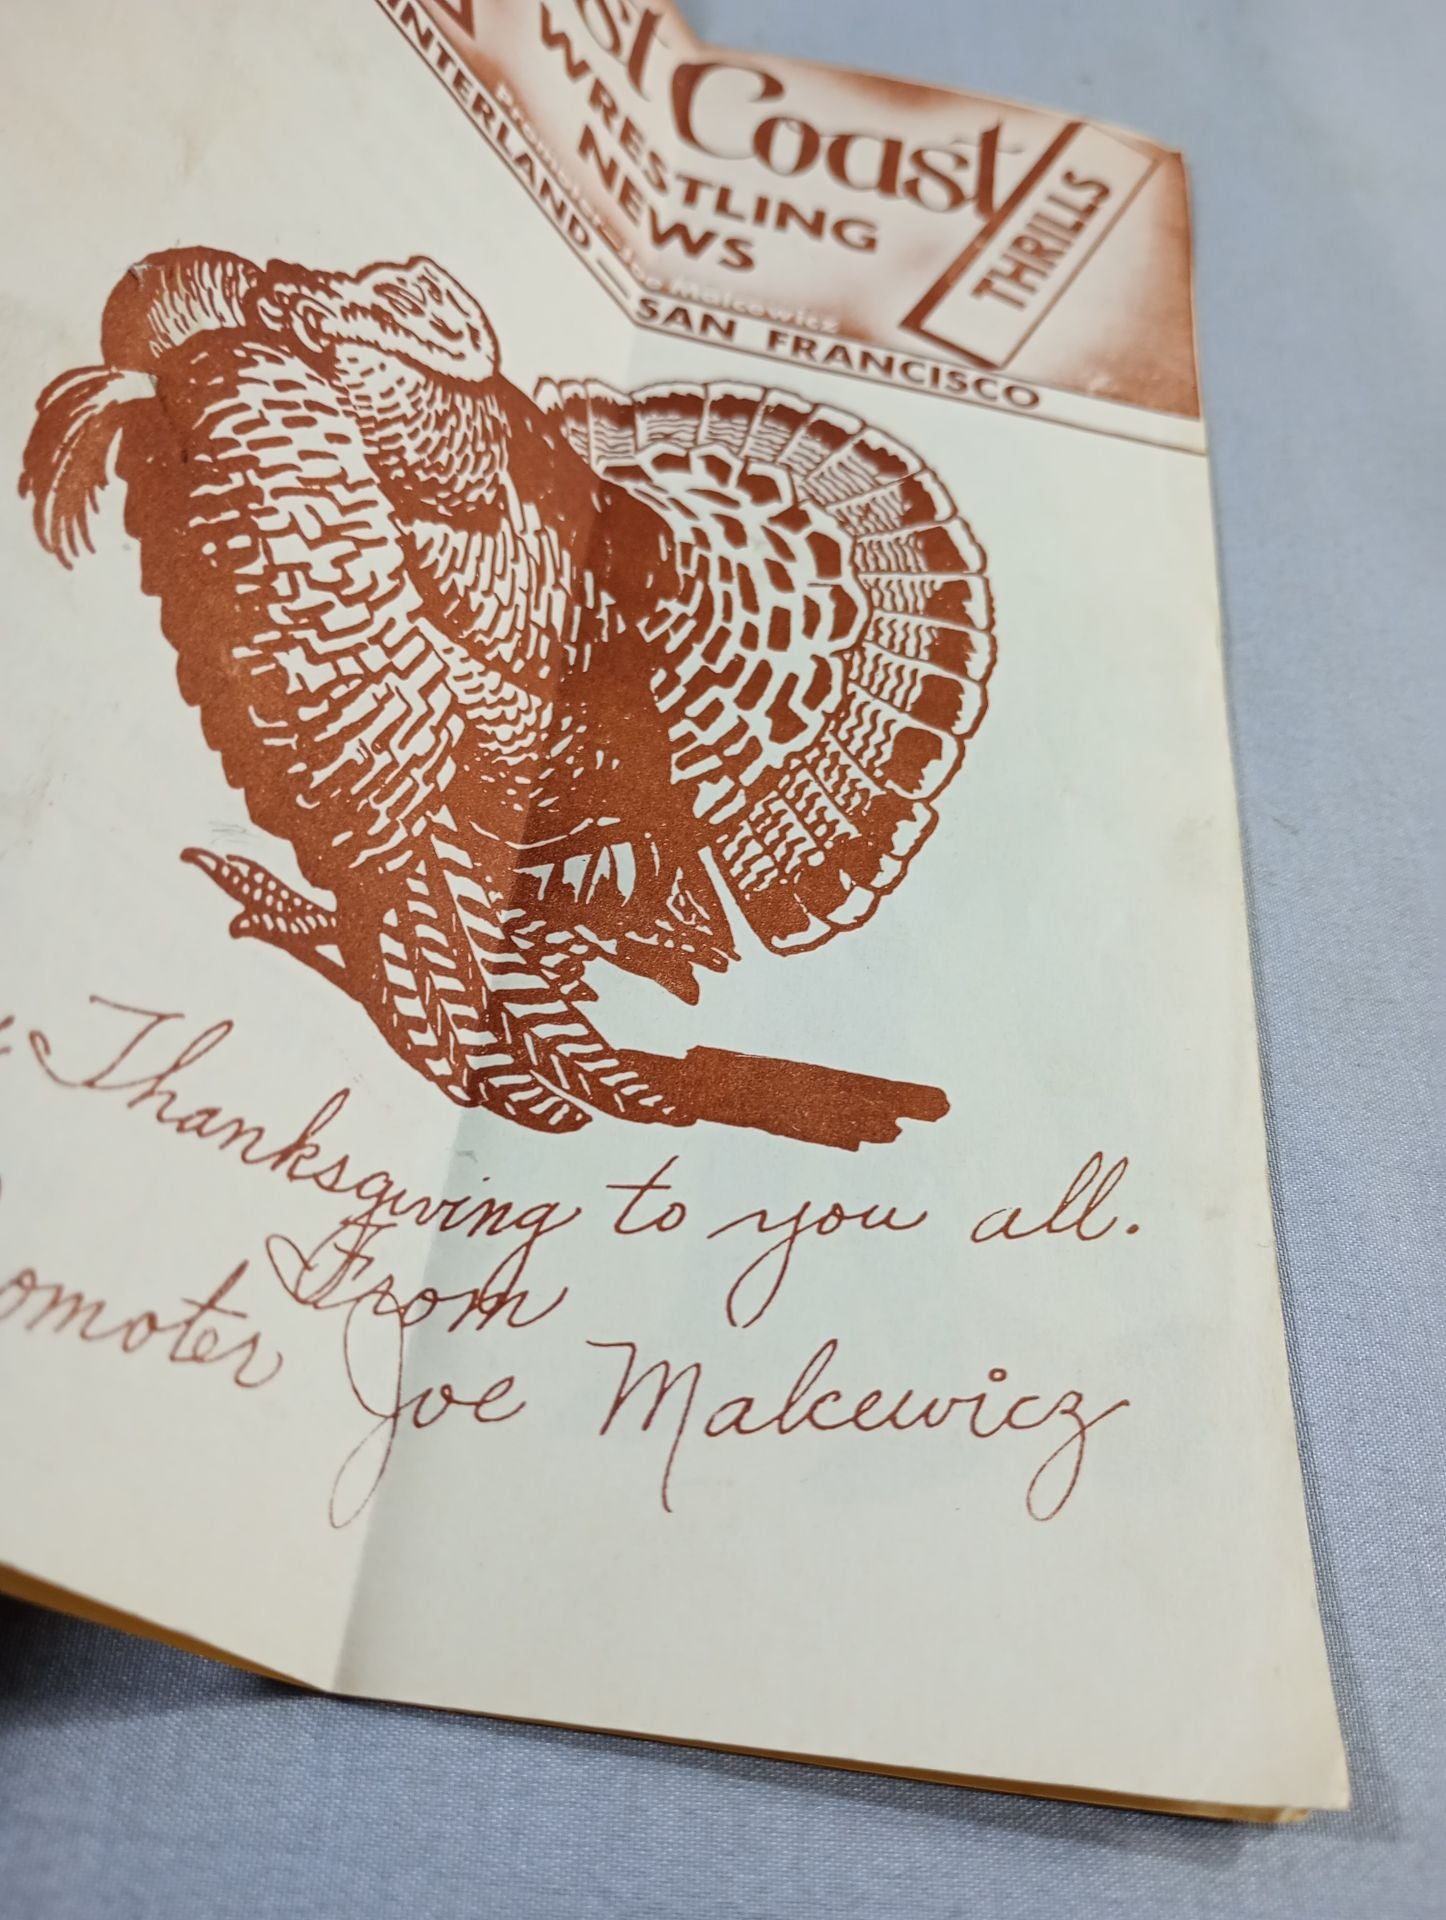 st Coast
WRESTLING
NEWS
THRILLS
Promoter—Joe Malcewicz
INTERLAND — SAN FRANCISCO
Thanksgiving to you all.
From
omoter Joe Malcewicz